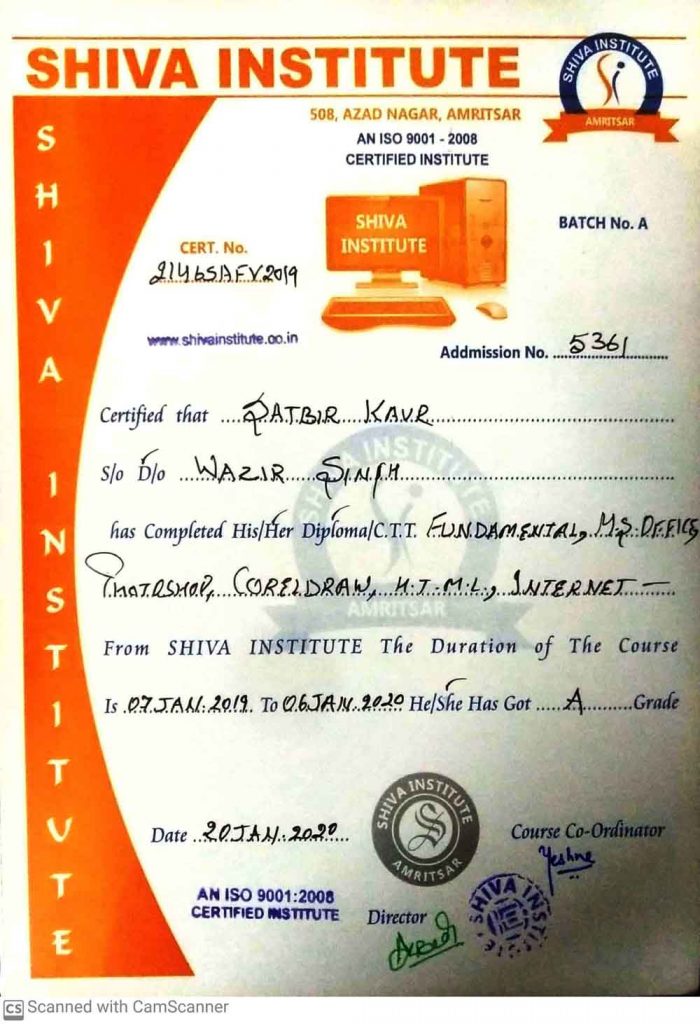 SHIVA INSTITUTE
SHIVA INSTITUTE
AMRITSAR
508, AZAD NAGAR, AMRITSAR
AN ISO 9001 - 2008
CERTIFIED INSTITUTE
SHIVA INSTITUTE
SHIVA
INSTITUTE
BATCH No. A
CERT. No.
2146SAFV2019
www.shivainstitute.co.in
Addmission No. 5361
Certified that SATBIR KAUR
S/o D/o WAZIR SINGH
has Completed His/Her Diploma/C.T.T. FUNDAMENTAL, M.S. OFFICE,
PHOTOSHOP, CORELDRAW, H.T.M.L., INTERNET —
SHIVA INSTITUTE
AMRITSAR
From SHIVA INSTITUTE The Duration of The Course
Is 07 JAN. 2019. To 06 JAN. 2020 He/She Has Got A Grade
Date 20 JAN. 2020
SHIVA INSTITUTE
AMRITSAR
Course Co-Ordinator
AN ISO 9001:2008
CERTIFIED INSTITUTE
Director
SHIVA INSTITUTE
CS Scanned with CamScanner